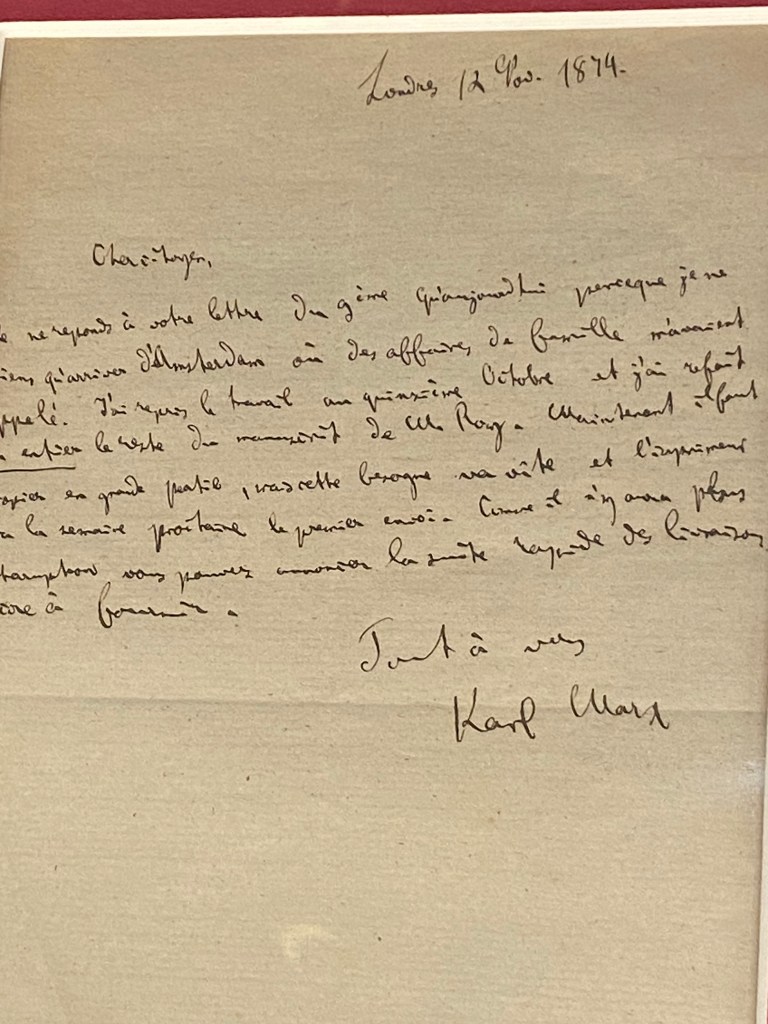 Londres 12 Nov. 1874.
Cher citoyen,
ne réponds à votre lettre du 9ème qu'aujourd'hui parceque je ne
viens qu'arriver d'Amsterdam où des affaires de famille m'avaient
appelé. J'ai repris le travail au quinzième Octobre et j'ai refait
entier le reste du manuscrit de M. Roy. Maintenant il faut
copier en grande partie, mais cette besogne va vite et l'imprimeur
la semaine prochaine le premier envoi. Comme il n'y aura plus
vous pouvez annoncer la suite rapide des livraisons
à fournir.
Tout à vous
Karl Marx